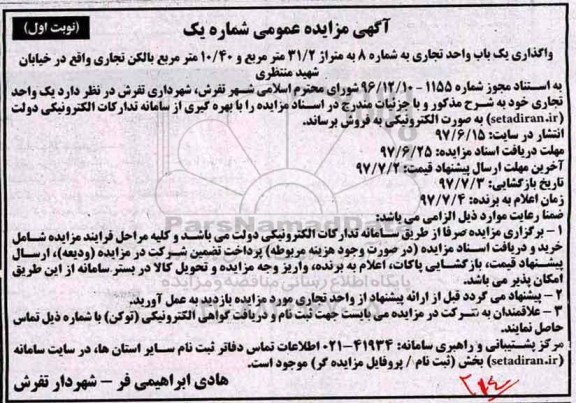 آگهی مزایده عمومی شماره یک
(نوبت اول)
واگذاری یک باب واحد تجاری به شماره ۸ به متراژ ۳۱/۲ متر مربع و ۱۰/۴۰ متر مربع بالکن تجاری واقع در خیابان
شهید منتظری
به استناد مجوز شماره ۱۱۵۵ - ۹۶/۱۲/۱۰ شورای محترم اسلامی شهر تفرش، شهرداری تفرش در نظر دارد یک واحد
تجاری خود به شرح مذکور و با جزئیات مندرج در اسناد مزایده را با بهره گیری از سامانه تدارکات الکترونیکی دولت
(setadiran.ir) به صورت الکترونیکی به فروش برساند.
انتشار در سایت: ۹۷/۶/۱۵
مهلت دریافت اسناد مزایده: ۹۷/۶/۲۵
آخرین مهلت ارسال پیشنهاد قیمت: ۹۷/۷/۲
تاریخ بازگشایی: ۹۷/۷/۳
زمان اعلام به برنده: ۹۷/۷/۴
ضمنا رعایت موارد ذیل الزامی می باشد:
۱ - برگزاری مزایده صرفا از طریق سامانه تدارکات الکترونیکی دولت می باشد و کلیه مراحل فرایند مزایده شامل
خرید و دریافت اسناد مزایده (در صورت وجود هزینه مربوطه) پرداخت تضمین شرکت در مزایده (ودیعه)، ارسال
پیشنهاد قیمت، بازگشایی پاکات، اعلام به برنده، واریز وجه مزایده و تحویل کالا در بستر سامانه از این طریق
امکان پذیر می باشد.
۲ - پیشنهاد می گردد قبل از ارائه پیشنهاد از واحد تجاری مورد مزایده بازدید به عمل آورید.
۳ - علاقمندان به شرکت در مزایده می بایست جهت ثبت نام و دریافت گواهی الکترونیکی (توکن) با شماره ذیل تماس
حاصل نمایند.
مرکز پشتیبانی و راهبری سامانه: ۴۱۹۳۴-۰۲۱ اطلاعات تماس دفاتر ثبت نام سایر استان ها، در سایت سامانه
(setadiran.ir) بخش (ثبت نام / پروفایل مزایده گر) موجود است.
هادی ابراهیمی فر - شهردار تفرش
ParsNamadData
پایگاه اطلاع رسانی مناقصه و مزایده